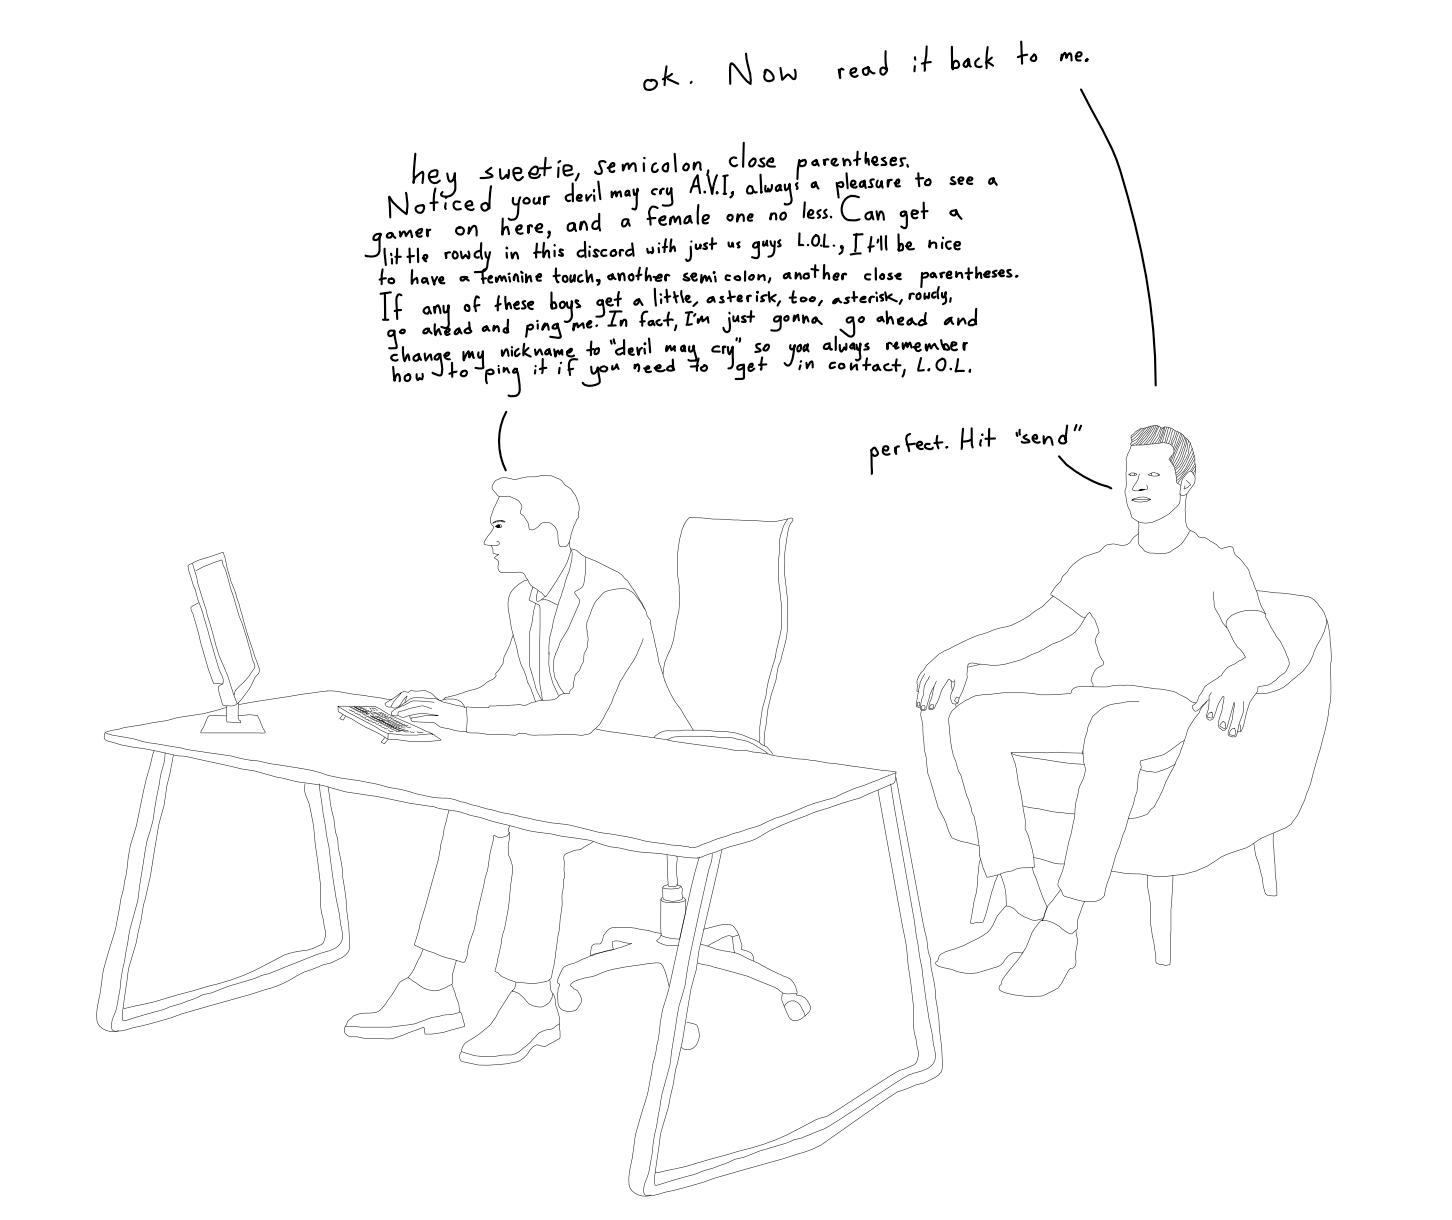 ok. Now read it back to me.
hey sweetie, semicolon, close parentheses.
Noticed your devil may cry A.V.I, always a pleasure to see a
gamer on here, and a female one no less. Can get a
little rowdy in this discord with just us guys L.O.L., It'll be nice
to have a feminine touch, another semi colon, another close parentheses.
If any of these boys get a little, asterisk, too, asterisk, rowdy,
go ahead and ping me. In fact, I'm just gonna go ahead and
change my nickname to "devil may cry" so you always remember
how to ping it if you need to get in contact, L.O.L.
perfect. Hit "send"